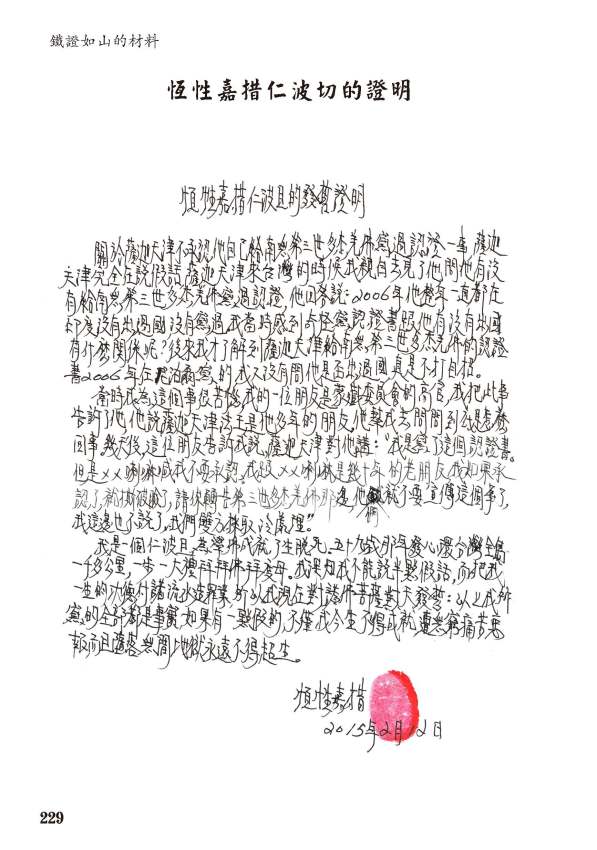 鐵證如山的材料
恆性嘉措仁波切的證明
恒性嘉措仁波且的發誓證明
關於薩迦天津不承認他自己給南無第三世多杰羌佛寫過認證一事，薩迦
天津完全在說假話，薩迦天津來台灣的時候我親自去見了他問他有沒
有給南無第三世多杰羌佛寫過認證，他回答說：2006年他整年一直都在
印度沒有出過國沒有寫過，我當時感到奇怪，寫認證書跟他有沒有出國
有什麼關係呢？後來我才了解到薩迦天津給南無第三世多杰羌佛的認證
書2006年在 寫的，我又沒有問他是否出過國，真是不打自招。
當時我為這個事很苦惱，我的一位朋友是蒙藏委員會的高官，我把此事
告訴了他，他說薩迦天津法王是他多年的朋友，他幫我去問問到底是怎麼
回事。幾天後，這位朋友告訴我說，薩迦天津對他講：“我是寫了這個認證書。
但是××喇嘛喊我不要承認。我跟××喇嘛是幾十年的老朋友，我如果承
認了，就撕破臉了，請你轉告第三世多杰羌佛那邊，他們就不要宣傳這個事了，
我這邊也不說了。我們雙方採取冷處理。”
我是一個仁波且，為學佛成就了生脫死。五十九歲那年發心環台灣全島
一千多公里，一步一大禮拜拜佛拜度母。我深知我不能說半點假話，而把我
一生的功德付諸流水造罪業，所以我現在對諸佛菩薩對天發誓：以上我所
寫的全部都是事實，如果有一點假的，不僅我今生不得成就，遭 窮痛苦 
報，而且墮落無間地獄永遠不得超生。
恒性嘉措
2015年2月12日
229